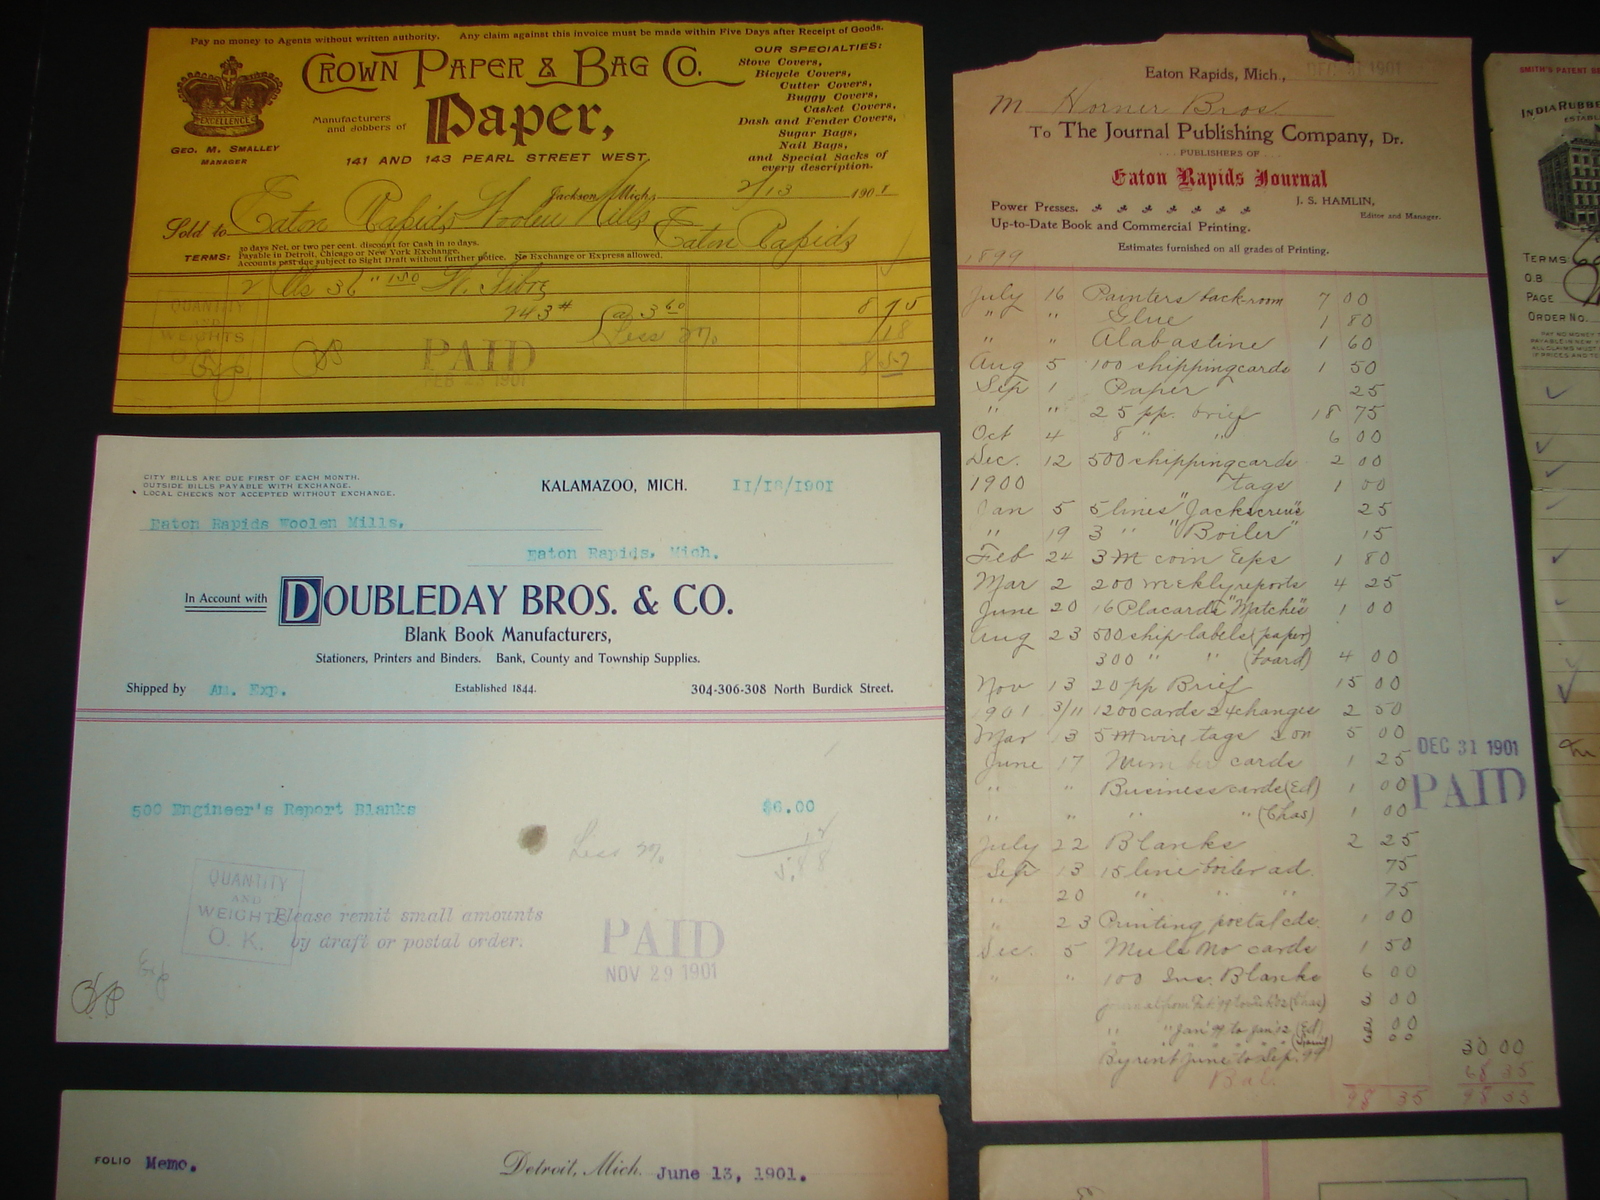 Pay no money to Agents without written authority. Any claim against this invoice must be made within Five Days after Receipt of Goods.
CROWN PAPER & BAG CO.
EXCELLENCE
GEO. M. SMALLEY
MANAGER
Manufacturers
and Jobbers of
Paper,
141 AND 143 PEARL STREET WEST.
OUR SPECIALTIES:
Stove Covers,
Bicycle Covers,
Cutter Covers,
Buggy Covers,
Casket Covers,
Dash and Fender Covers,
Sugar Bags,
Nail Bags,
and Special Sacks of
every description.
Jackson, Mich., 2/13 1901
Sold to Eaton Rapids Woolen Mills Eaton Rapids
TERMS: 30 days Net, or two per cent. discount for Cash in 10 days.
Payable in Detroit, Chicago or New York Exchange.
Accounts past due subject to Sight Draft without further notice. No Exchange or Express allowed.
2 36"
243# @ 3 60 8 75
Less 2% 18
8 57
QUANTITY
AND
WEIGHTS
O. K.
PAID
FEB 23 1901
CITY BILLS ARE DUE FIRST OF EACH MONTH.
OUTSIDE BILLS PAYABLE WITH EXCHANGE.
LOCAL CHECKS NOT ACCEPTED WITHOUT EXCHANGE.
KALAMAZOO, MICH. 11/18/1901
Eaton Rapids Woolen Mills,
Eaton Rapids, Mich.
In Account with DOUBLEDAY BROS. & CO.
Blank Book Manufacturers,
Stationers, Printers and Binders. Bank, County and Township Supplies.
Shipped by Am. Exp. Established 1844. 304-306-308 North Burdick Street.
500 Engineer's Report Blanks $6.00
Less 2% 12
5.88
QUANTITY
AND
WEIGHTS
O. K.
Please remit small amounts
by draft or postal order.
PAID
NOV 29 1901
Exp
FOLIO Memo. Detroit, Mich. June 13, 1901.
Eaton Rapids, Mich., DEC 31 1901
M Horner Bros.
To The Journal Publishing Company, Dr.
PUBLISHERS OF
Eaton Rapids Journal
J. S. HAMLIN,
Editor and Manager.
Power Presses.
Up-to-Date Book and Commercial Printing.
Estimates furnished on all grades of Printing.
1899
July 16 Painters back room 7 00
" " Glue 1 80
" " Alabastine 1 60
Aug 5 100 shipping cards 1 50
Sep 1 Paper 25
" " 25 pp. brief 18 75
Oct 4 8 " " 6 00
Dec. 12 500 shipping cards 2 00
1900 tags 1 00
Jan 5 5 lines "Jackscrews" 25
" 19 3 " "Boiler" 15
Feb 24 3 M coin Eps 1 80
Mar 2 200 weekly reports 4 25
June 20 16 Placards "Matches" 1 00
Aug 23 500 ship labels (paper)
300 " " (board) 4 00
Nov 13 20 pp Brief 15 00
1901 3/11 1200 cards 24 changes 2 50
Mar 13 5 M wire tags 2 on 5 00
June 17 Number cards 1 25
" " Business cards (Ed) 1 00
" " " " (Chas) 1 00
July 22 Blanks 2 25
Sep 13 15 line boiler ad. 75
" 20 " " " 75
" 23 Printing postal cds. 1 00
Dec. 5 Mule No cards 1 50
" " 100 Inv. Blanks 6 00
(Chas) 3 00
" " Jan '99 to Jan '02 (Ed) 3 00
" " " " 3 00
By rent June to Sep. 99 30 00
Bal. 68 35
98 35 98 35
DEC 31 1901
PAID
SMITH'S PATENT
INDIA RUBBE
ESTABL
TERMS
O.B
PAGE
ORDER NO.